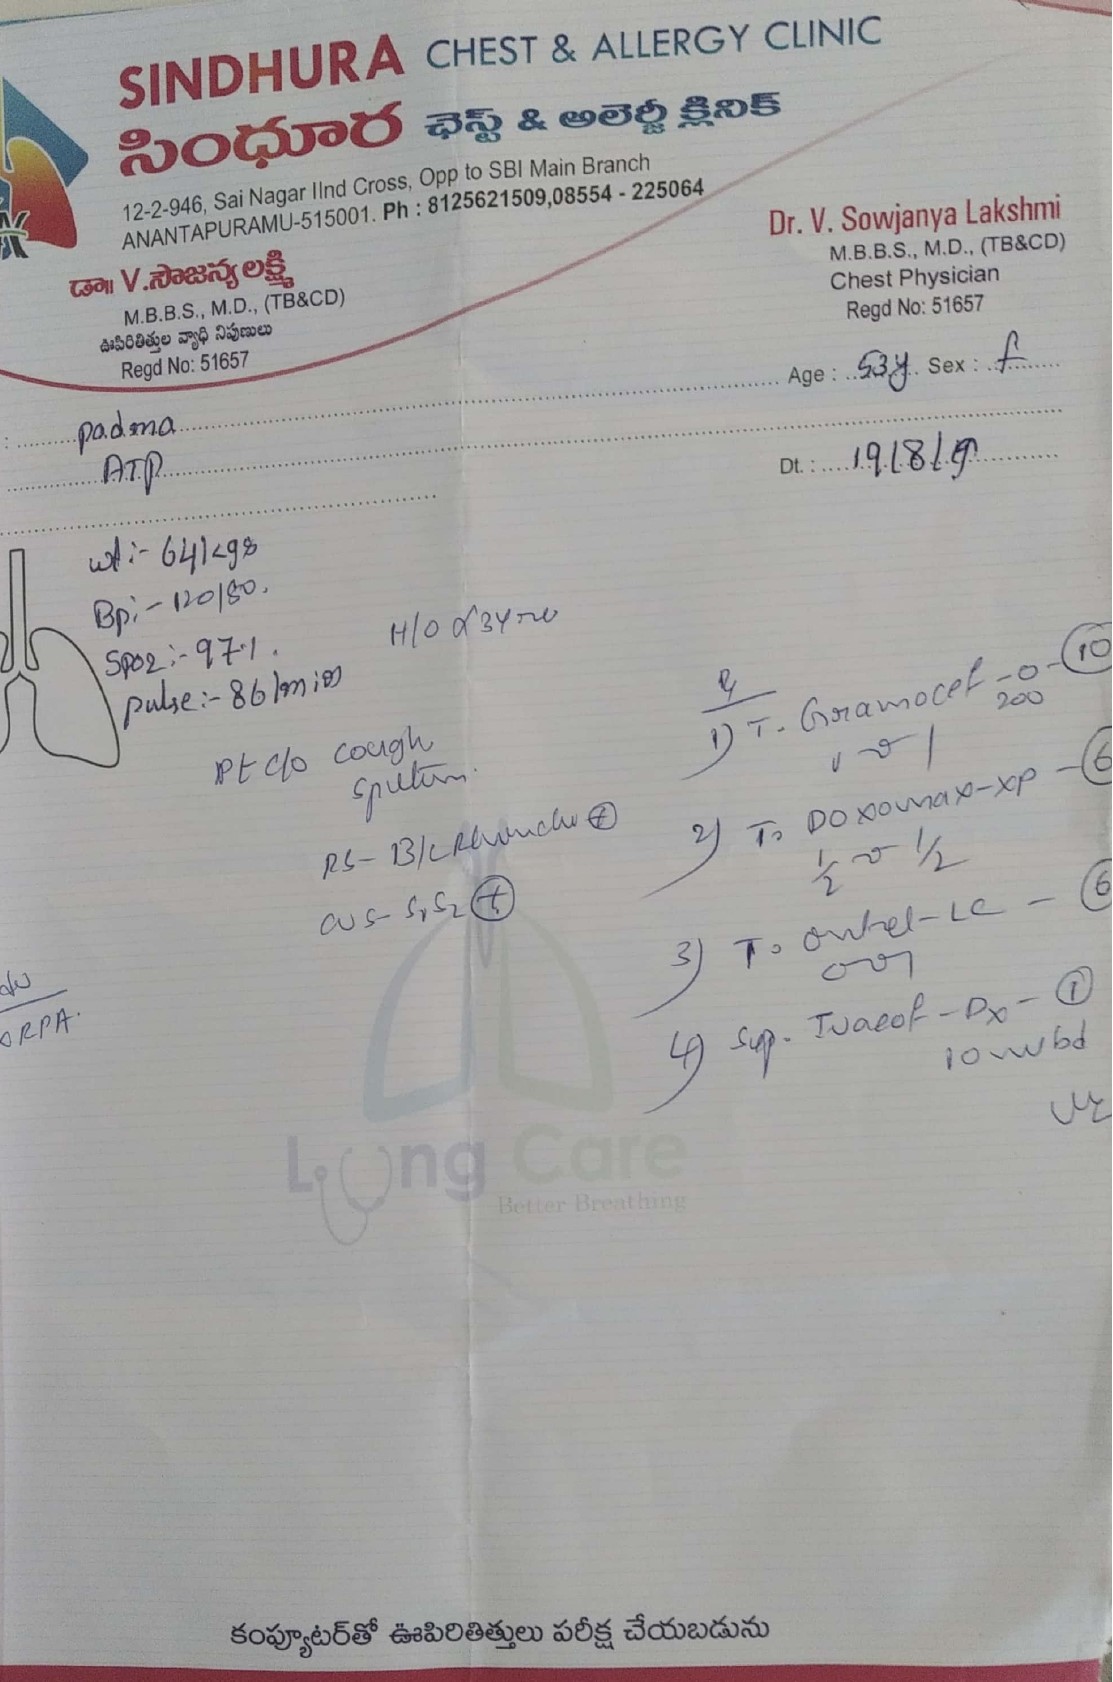 SINDHURA CHEST & ALLERGY CLINIC
సింధూర ఛెస్ట్ & అలెర్జీ క్లినిక్
12-2-946, Sai Nagar IInd Cross, Opp to SBI Main Branch
ANANTAPURAMU-515001. Ph : 8125621509,08554 - 225064
డా॥ V.సౌజన్య లక్ష్మి
M.B.B.S., M.D., (TB&CD)
ఊపిరితిత్తుల వ్యాధి నిపుణులు
Regd No: 51657
Dr. V. Sowjanya Lakshmi
M.B.B.S., M.D., (TB&CD)
Chest Physician
Regd No: 51657
: padma Age : 53y Sex : f
ATP Dt. : 19/8/19
wt:- 64kgs
Bp:- 120/80.
SpO2:- 97%.
pulse:- 86/min
H/O
Pt c/o cough
sputum.
RS- B/L Rhonchi +
CVS- S1S2 +
ORPA.
Rx
1) T. Gramocef-O- 10
200
1 0 1
2) T. Doxomax-XP - 6
1/2 0 1/2
3) T. -LC - 6
0 0 1
4) Syp. -Dx- 1
10 bd
Lung Care
Better Breathing
కంప్యూటర్‌తో ఊపిరితిత్తులు పరీక్ష చేయబడును